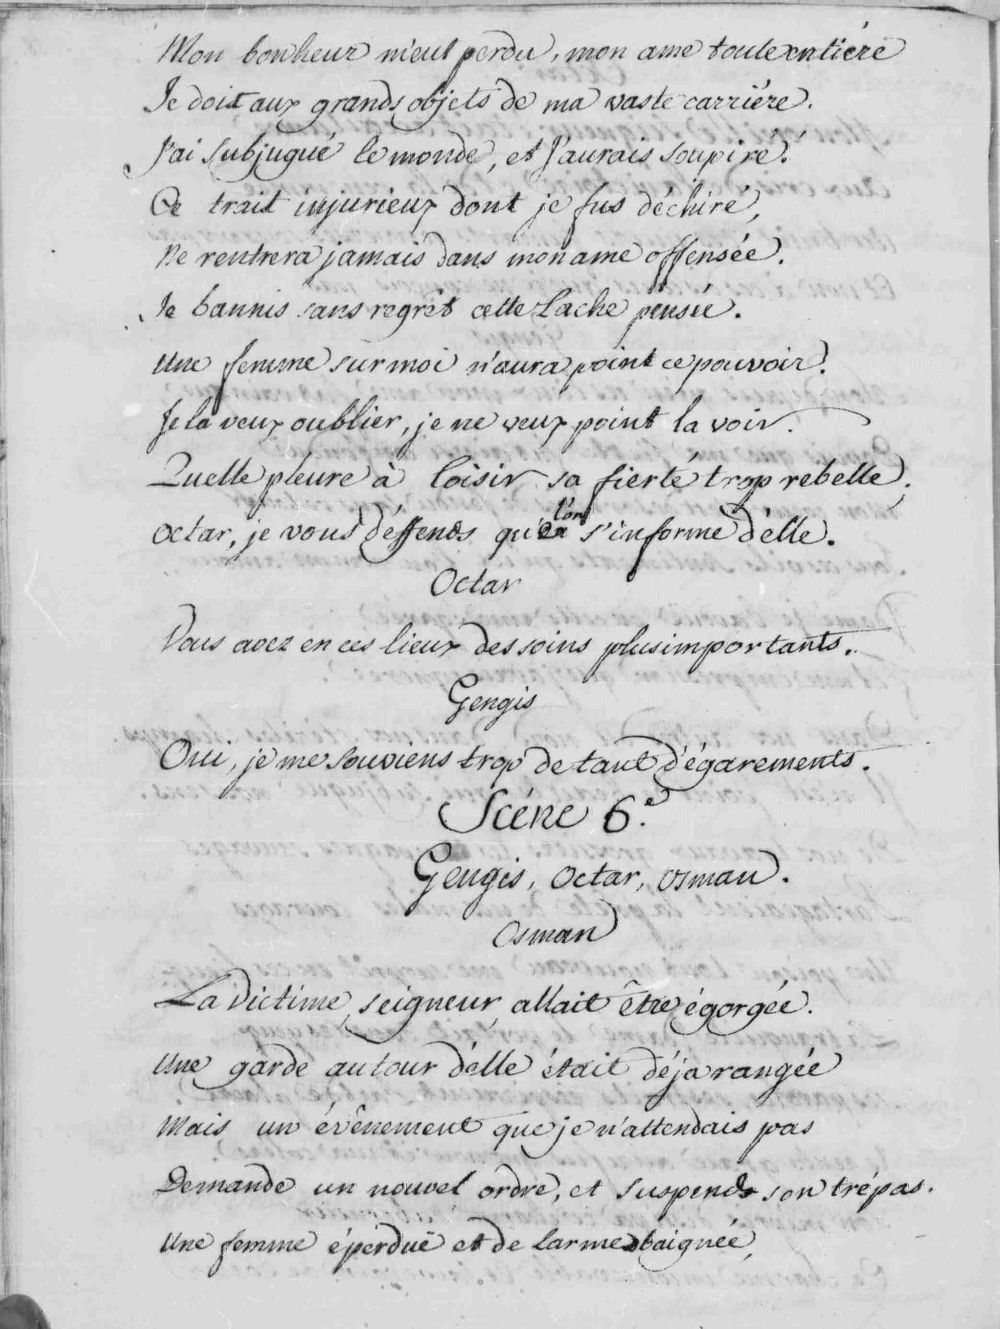 Mon bonheur m'eut perdu, mon ame toute entiére
Je doit aux grands objets de ma vaste carriére.
J'ai subjugué le monde, et j'aurais soupiré!
Ce trait injurieux dont je fus déchiré,
Ne rentrera jamais dans mon ame offensée.
Je bannis sans regrèt cette lache pensée.
Une femme sur moi n'aura point ce pouvoir.
Je la veux oublier, je ne veux point la voir.
Quelle pleure à loisir sa fierté trop rebelle;
Octar, je vous déffends que l'on s'informe d'elle.
Octar
Vous avez en ces lieux des soins plus importants.
Gengis
Oui, je me souviens trop de tant d'égarements.
Scéne 6.e
Gengis, Octar, Osman.
Osman
La victime, seigneur, allait être égorgée.
Une garde autour d'elle était déja rangée
Mais un évênement que je n'attendais pas
Demande un nouvel ordre, et suspend son trépas.
Une femme éperdue et de larmes baignée,